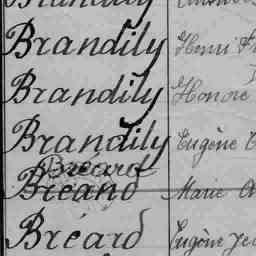 Brandily
Brandily Henri
Brandily Honoré
Brandily Eugène
Bréard
Bréand Marie
Bréard Eugène